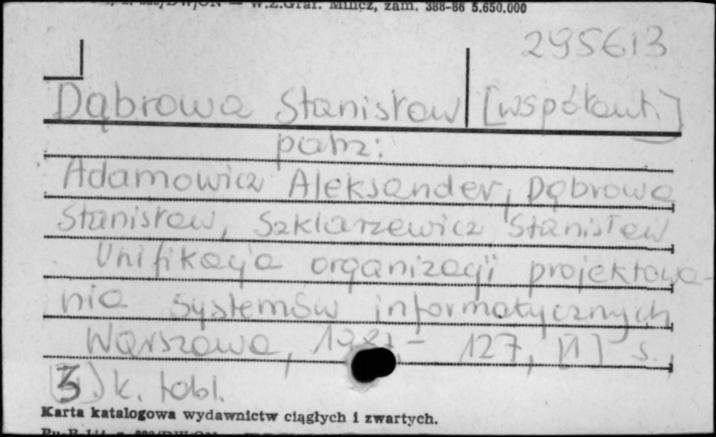 W.Z.Graf. Milicz, zam. 388-86 5.650.000
295613
Dąbrowa Stanisław [współaut.]
patrz:
Adamowicz Aleksander, Dąbrowa
Stanisław, Szklarzewicz Stanisław
Unifikacja organizacji projektowa-
nia systemów informatycznych
Warszawa, 1981. - 127, [1] s.,
k. tabl.
Karta katalogowa wydawnictw ciągłych i zwartych.